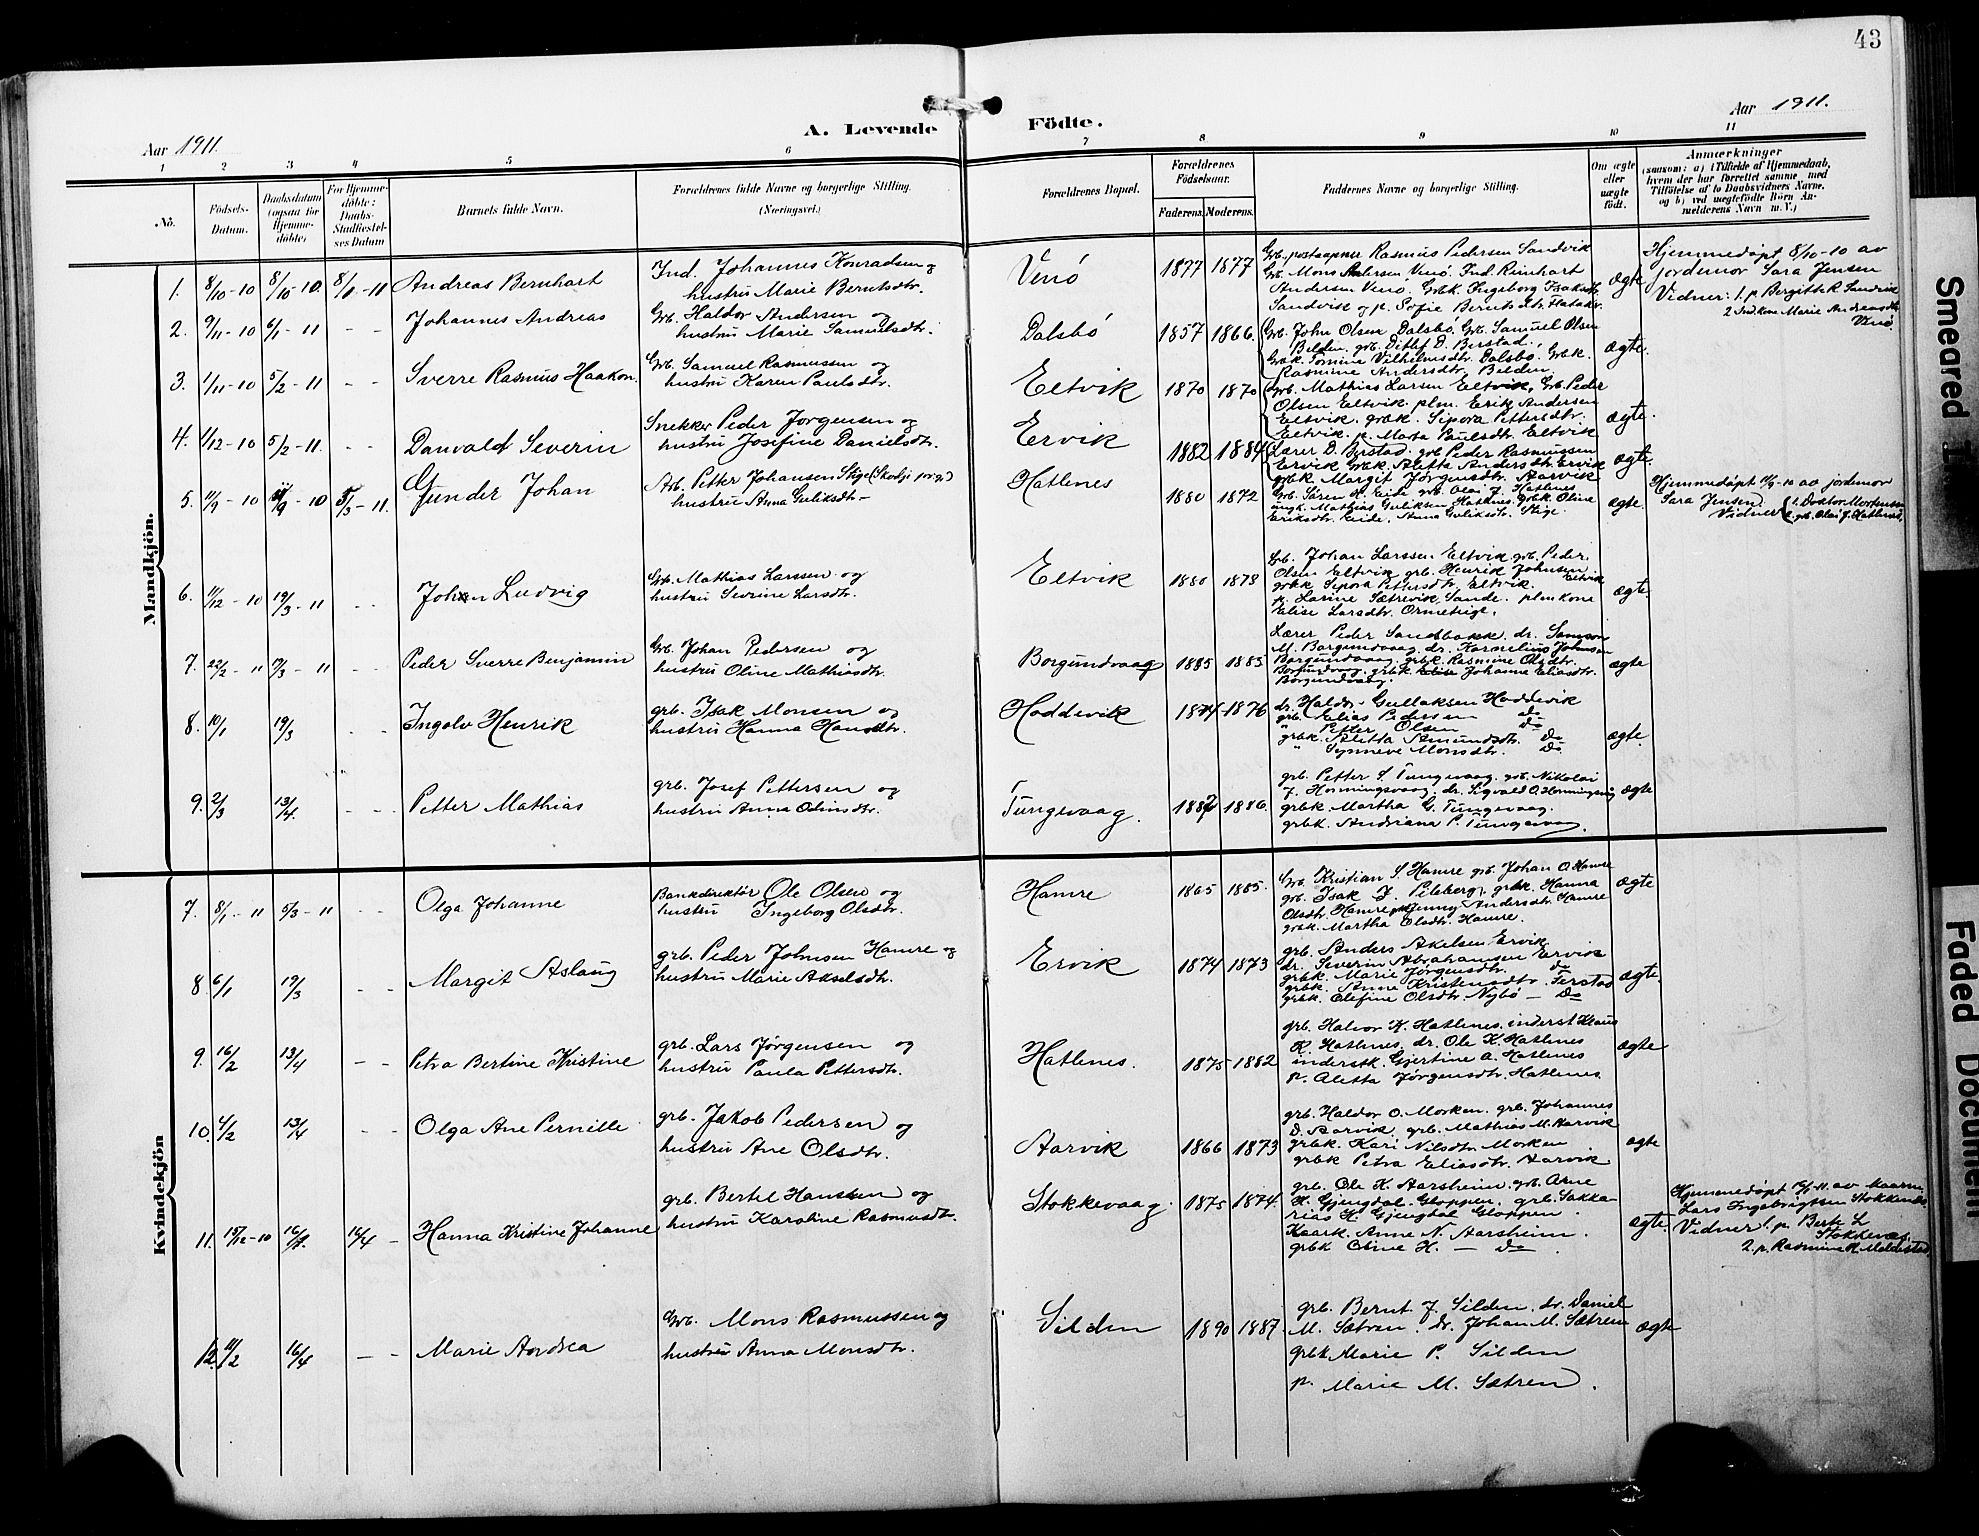 43
Aar 1911.
A. Levende Födte.
Aar 1911.
1 2 3 4 5 6 7 8 9 10 11
No.
Födsels-Datum.
Daabsdatum (ogsaa for Hjemme-döbte)
For Hjemme-döbte: Daabs-Stadfæstel-ses Datum
Barnets fulde Navn.
Forældrenes fulde Navne og borgerlige Stilling. (Næringsvei.)
Forældrenes Bopæl.
Forældrenes Födselsaar.
Faderens. Moderens.
Faddernes Navne og borgerlige Stilling.
Om ægte eller uægte födt.
Anmærkninger (saasom: a) i Tilfælde af Hjemmedaab, hvem der har forrettet samme med Tilföielse af to Daabsvidners Navne, og b) ved uægtefödte Börn An-melderens Navn m. V.)
Mandkjön.
1. 8/10 - 10 8/10 - 10. 8/1 - 11 Andreas Bernhart
Ind. Johannes Konradsen og
hustru Marie Berntsdtr.
Venö 1877 1877
Grb. postaapner Rasmus Pedersen Sandvik
Grb. Mons Andersen Venö. Ind. Reinhart
Andersen Venö. Grbk. Ingeborg Isaksdtr.
Sandvik og p. Sofie Berntsdtr.
ægte
Hjemmedöpt 8/10-10 av
jordemor Sara Jensen
Vidner: 1. p. Bergitte R Sandvik
2 Indkone Marie Andreasdtr
Venö
2. 9/11 - 10 6/1 - 11 - - Johannes Andreas
Grb. Haldor Andersen og
hustru Marie Samuelsdtr.
Dalsbö 1857 1866.
Grb. John Olsen Dalsbö. Grb. Samuel Olsen
Belden. grb. Ditlef D. Berstad.
Grbk. Tomine Vilhelmsdtr. Dalsbö. Grbk.
Rasmine Andersdtr. Belden.
ægte.
3. 1/11 - 10 5/2 - 11 - - Sverre Rasmus Haakon.
Grb. Samuel Rasmussen og
hustru Karen Paulsdtr.
Eltvik 1870 1870
Grb. Mathias Larsen Eltvik, Grb. Peder
Olsen Eltvik. plm. Erik Andersen
Eltvik. grbk. Sipora Pettersdtr.
Eltvik p. Marta Paulsdtr. Eltvik
ægte.
4. 1/12 - 10 5/2 - 11. - - Danvald Severin
Snekker Peder Jørgensen og
hustru Josefine Danielsdtr.
Ervik 1882 1884
Lærer D. Berstad. grb Peder Rasmussen
Ervik Grbk. Aletta Andersdtr. Ervik
grbk. Margit Jørgensdtr. Aarvik
ægte.
5. 11/9 - 10 11/9 - 10 5/3 - 11. Gunder Johan
Arb. Petter Johansen Stige (Skodje prgj.)
hustru Anna Guliksdtr -
Hatlenes 1880 1872
Grb. Sören H. Eide grb. Olai J. Hatlenes
ungk. Mathias Guliksen Hatlenes, grbk. Oline
Eriksdtr. Eide. Anna Guliksdtr. Stige.
ægte.
Hjemmedöpt 11/9-10 av jordemor
Sara Jensen.
Vidner 1. Doktor Mortensen
2. grb. Olai J. Hatlenes.
6. 11/12 - 10 19/3 - 11 - - Johan Ludvig
Grb. Mathias Larssen og
hustru Severine Larsdtr.
Eltvik 1880 1878
Grb. Johan Larssen Eltvik grb. Peder
Olsen Eltvik grb. Henrik Johnsen
Eltvik
grbk Sipora Pettersdtr. Eltvik.
p. Larine Sætrevik, Sande. plmkone
Elise Larsdtr. Ormeteige.
ægte.
7. 22/2 - 11 19/3 - 11 - - Peder Sverre Benjamin
Grb. Johan Pedersen og
hustru Oline Mathiasdtr.
Borgundvaag 1885 1883
Lærer Peder Sandbakk. dr. Samson
M. Borgundvaag, dr. Kornelius Johnsen
Borgundvaag, grbk. Rasmine Olsdtr.
Borgundvaag, grbk. Johanne Eliasdtr.
Borgundvaag.
ægte
8. 10/1 19/3 - - Ingolv Henrik
grb. Isak Monsen og
hustru Hanna Hansdtr.
Hoddevik 1874 1876
dr. Haldor Gullaksen Hoddevik
grb. Elias Pedersen do
" Petter Olsen Do
grbk. Aletta Amundsdtr. Do
" Synneve Monsdtr. Do
ægte.
9. 2/3 13/4. - - Petter Mathias
grb. Josef Pettersen og
hustru Anna Odinsdtr.
Tungevaag. 1882 1886
grb. Petter S. Tungevaag, grb. Nikolai
J. Honningsvaag, dr. Sigvald O. Honningsvaag
grbk. Martha G. Tungevaag.
grbk. Andriana P. Tungevaag.
ægte
Kvindekjön
7. 8/1 - 11 5/3 - 11 - - Olga Johanne
Bankdirektör Ole Olsen og
hustru Ingeborg Olsdtr.
Hamre 1865 1885.
Grb. Kristian S Hamre grb. Johan O Hamre
grb. Isak J. grbk Hanna
Olsdtr. Hamre Jenny Andersdtr. Hamre
grbk. Martha Olsdtr. Hamre.
ægte
8. 6/1 19/3 - - Margit Aslaug
grb. Peder Johnsen Hamre og
hustru Marie Akselsdtr.
Ervik 1874 1873
grb. Anders Akelsen Ervik
dr. Severin Abrahamsen Ervik
grbk. Marie Jørgensdtr. do
grbk. Anne Kristensdtr. Ferstad
grbk. Olefine Olsdtr. Nybö - Do
ægte.
9. 16/2 13/4 - - Petra Bertine Kristine
grb. Lars Jørgensen og
hustru Paula Pettersdtr.
Hatlenes. 1875 1882
grb. Halvor K. Hatlenes. inderst Klaus
K. Hatlenes. dr. Ole K. Hatlenes
inderstk. Gjertine A. Hatlenes
p. Aletta Jørgensdtr. Hatlenes
ægte
10. 4/2 13/4 - - Olga Ane Pernille
grb. Jakob Pedersen og
hustru Ane Olsdtr.
Aarvik 1866 1873
grb. Haldor O. Morken. grb. Johannes
D. Aarvik. grb. Mathias M. Aarvik
grbk. Kari Nilsdtr. Morken
grbk Petra Eliasdtr. Aarvik
ægte
11. 15/12 - 10 16/4. 16/4 - Hanna Kristine Johanne
grb. Bertel Hanssen og
hustru Karoline Rasmusdtr.
Stokkevaag. 1875 1874.
grb. Ole H. Aarsheim. grb. Arne
H. Gjengdal, Gloppen. grb. Sakka-
rias H. Gjengdal Gloppen.
Kaark. Anne N. Aarsheim.
grbk Oline H. - Do -
ægte
Hjemmedöpt av
Lars Ingebrigtsen Stokkenes.
Vidner 1. p. Berte L
Stokkevaag
2. p. Rasmine R. Molnestad.
12. 11/2 16/4 - - Marie Andrea
Grb. Mons Rasmussen og
hustru Anna Monsdtr.
Silden 1890 1887.
grb. Bernt J. Silden. dr. Daniel
M. Sætren. dr. Johan M. Sætren
grbk Marie P. Silden
p. Marie M. Sætren.
ægte
Smeared
Faded Document